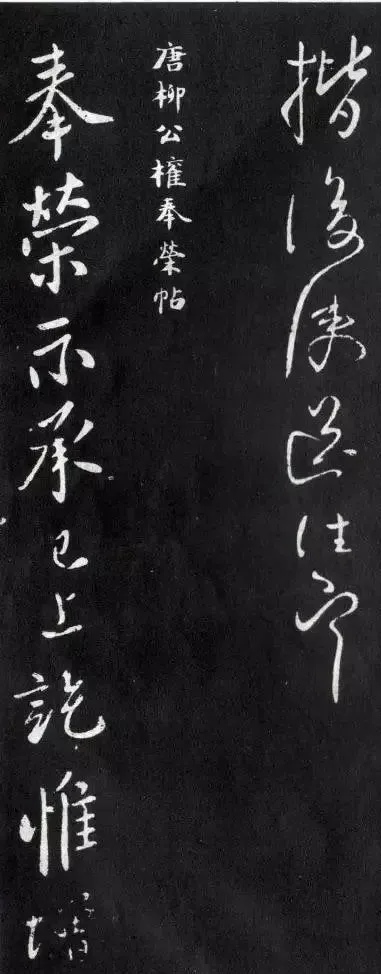 揩後使送往耳
唐柳公權奉榮帖
奉榮示承已上訖惟增